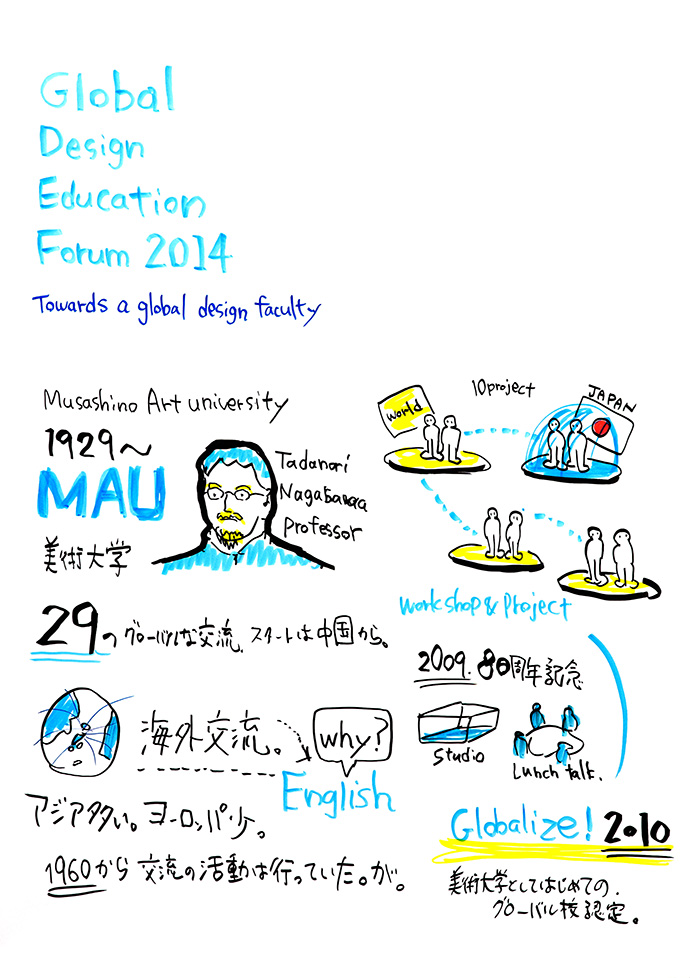 Global
Design
Education
Forum 2014
Towards a global design faculty
Musashino Art university
1929〜
MAU
美術大学
Tadanori
professor
29のグローバルな交流、スタートは中国から。
海外交流。
why?
English
アジア多い。ヨーロッパ少。
1960から交流の活動は行っていた。が。
10project
world
JAPAN
workshop & Project
2009. 80周年記念
studio
Lunch talk.
Globalize! 2010
美術大学としてはじめての.
グローバル校認定。